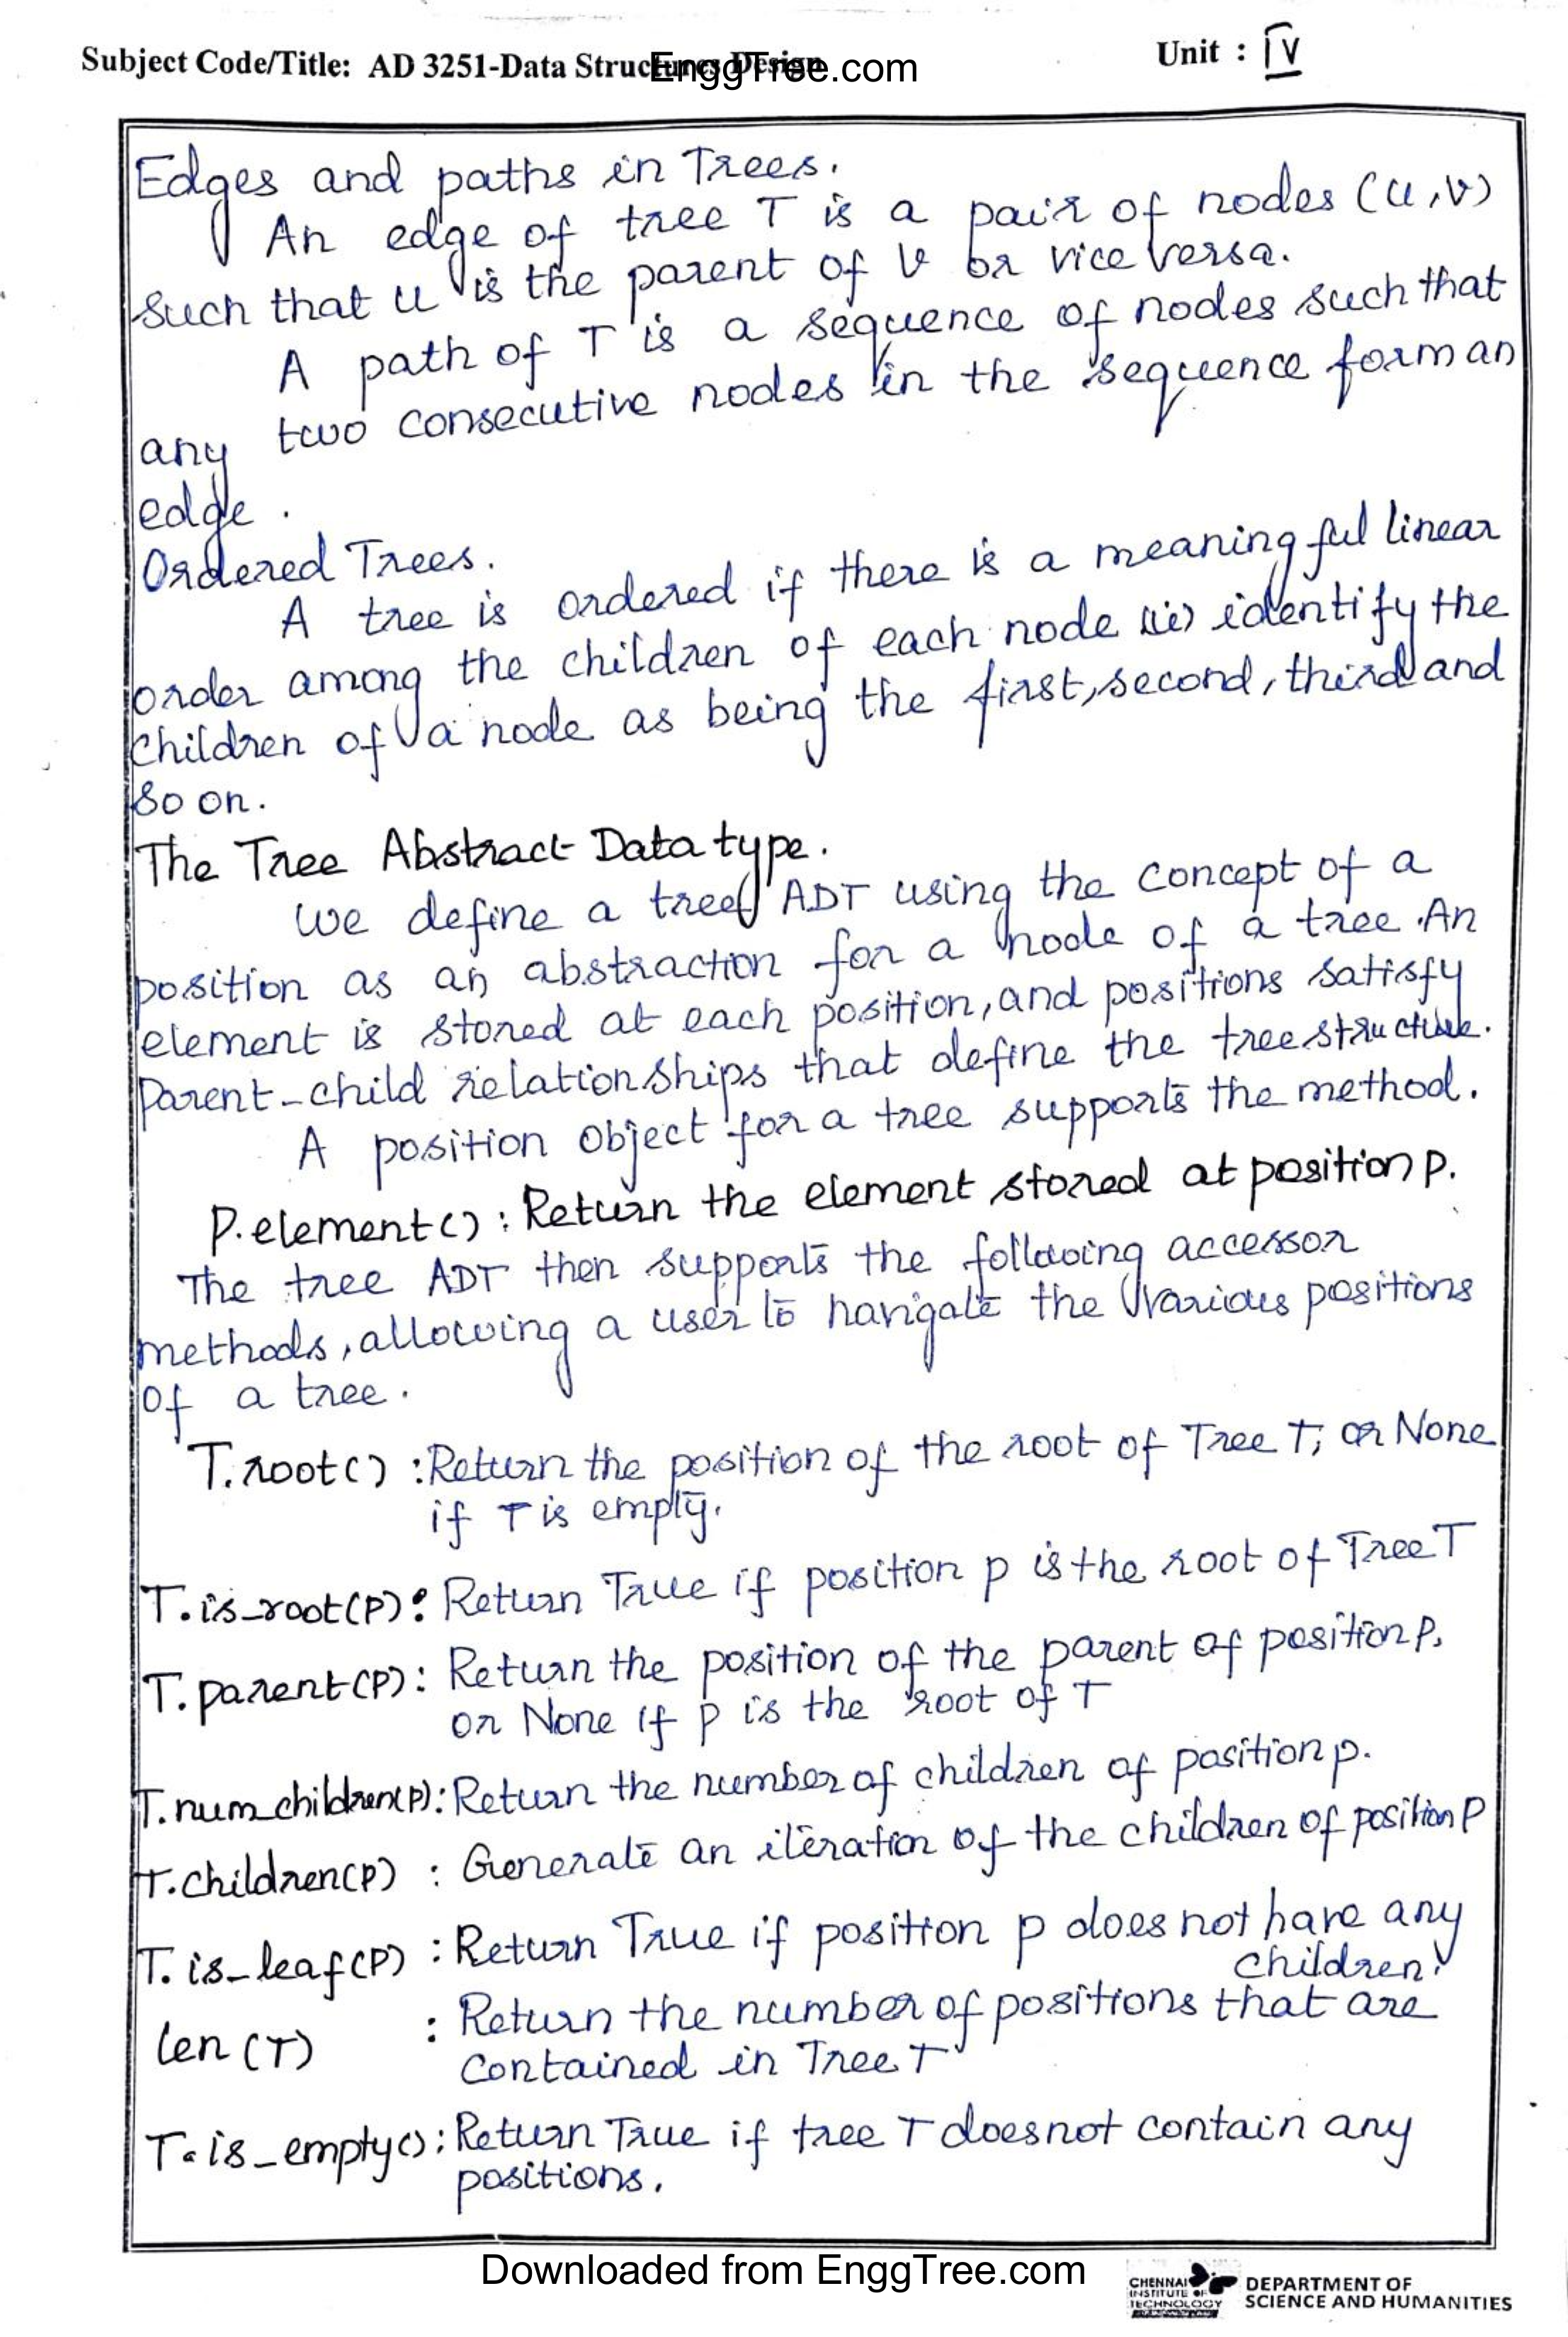 Subject Code/Title: AD 3251-Data Structures Design
EnggTree.com
Unit : IV
Edges and paths in Trees.
An edge of tree T is a pair of nodes (u,v)
such that u is the parent of v or vice versa.
A path of T is a sequence of nodes such that
any two consecutive nodes in the sequence form an
edge.
Ordered Trees.
A tree is ordered if there is a meaningful linear
order among the children of each node (ie) identify the
children of a node as being the first, second, third and
so on.
The Tree Abstract Data type.
We define a tree ADT using the concept of a
position as an abstraction for a node of a tree. An
element is stored at each position, and positions satisfy
parent-child relationships that define the tree structure.
A position object for a tree supports the method.
P.element() : Return the element stored at position p.
The tree ADT then supports the following accessor
methods, allowing a user to navigate the various positions
of a tree.
T.root() : Return the position of the root of Tree T, or None
if T is empty.
T.is_root(P) : Return True if position p is the root of Tree T
T.parent(P) : Return the position of the parent of position P,
or None if p is the root of T
T.num_children(P) : Return the number of children of position p.
T.children(P) : Generate an iteration of the children of position P
T.is_leaf(P) : Return True if position p does not have any
children.
len (T) : Return the number of positions that are
contained in Tree T
T.is_empty() : Return True if tree T doesnot contain any
positions.
Downloaded from EnggTree.com
CHENNAI
INSTITUTE OF
TECHNOLOGY
DEPARTMENT OF
SCIENCE AND HUMANITIES